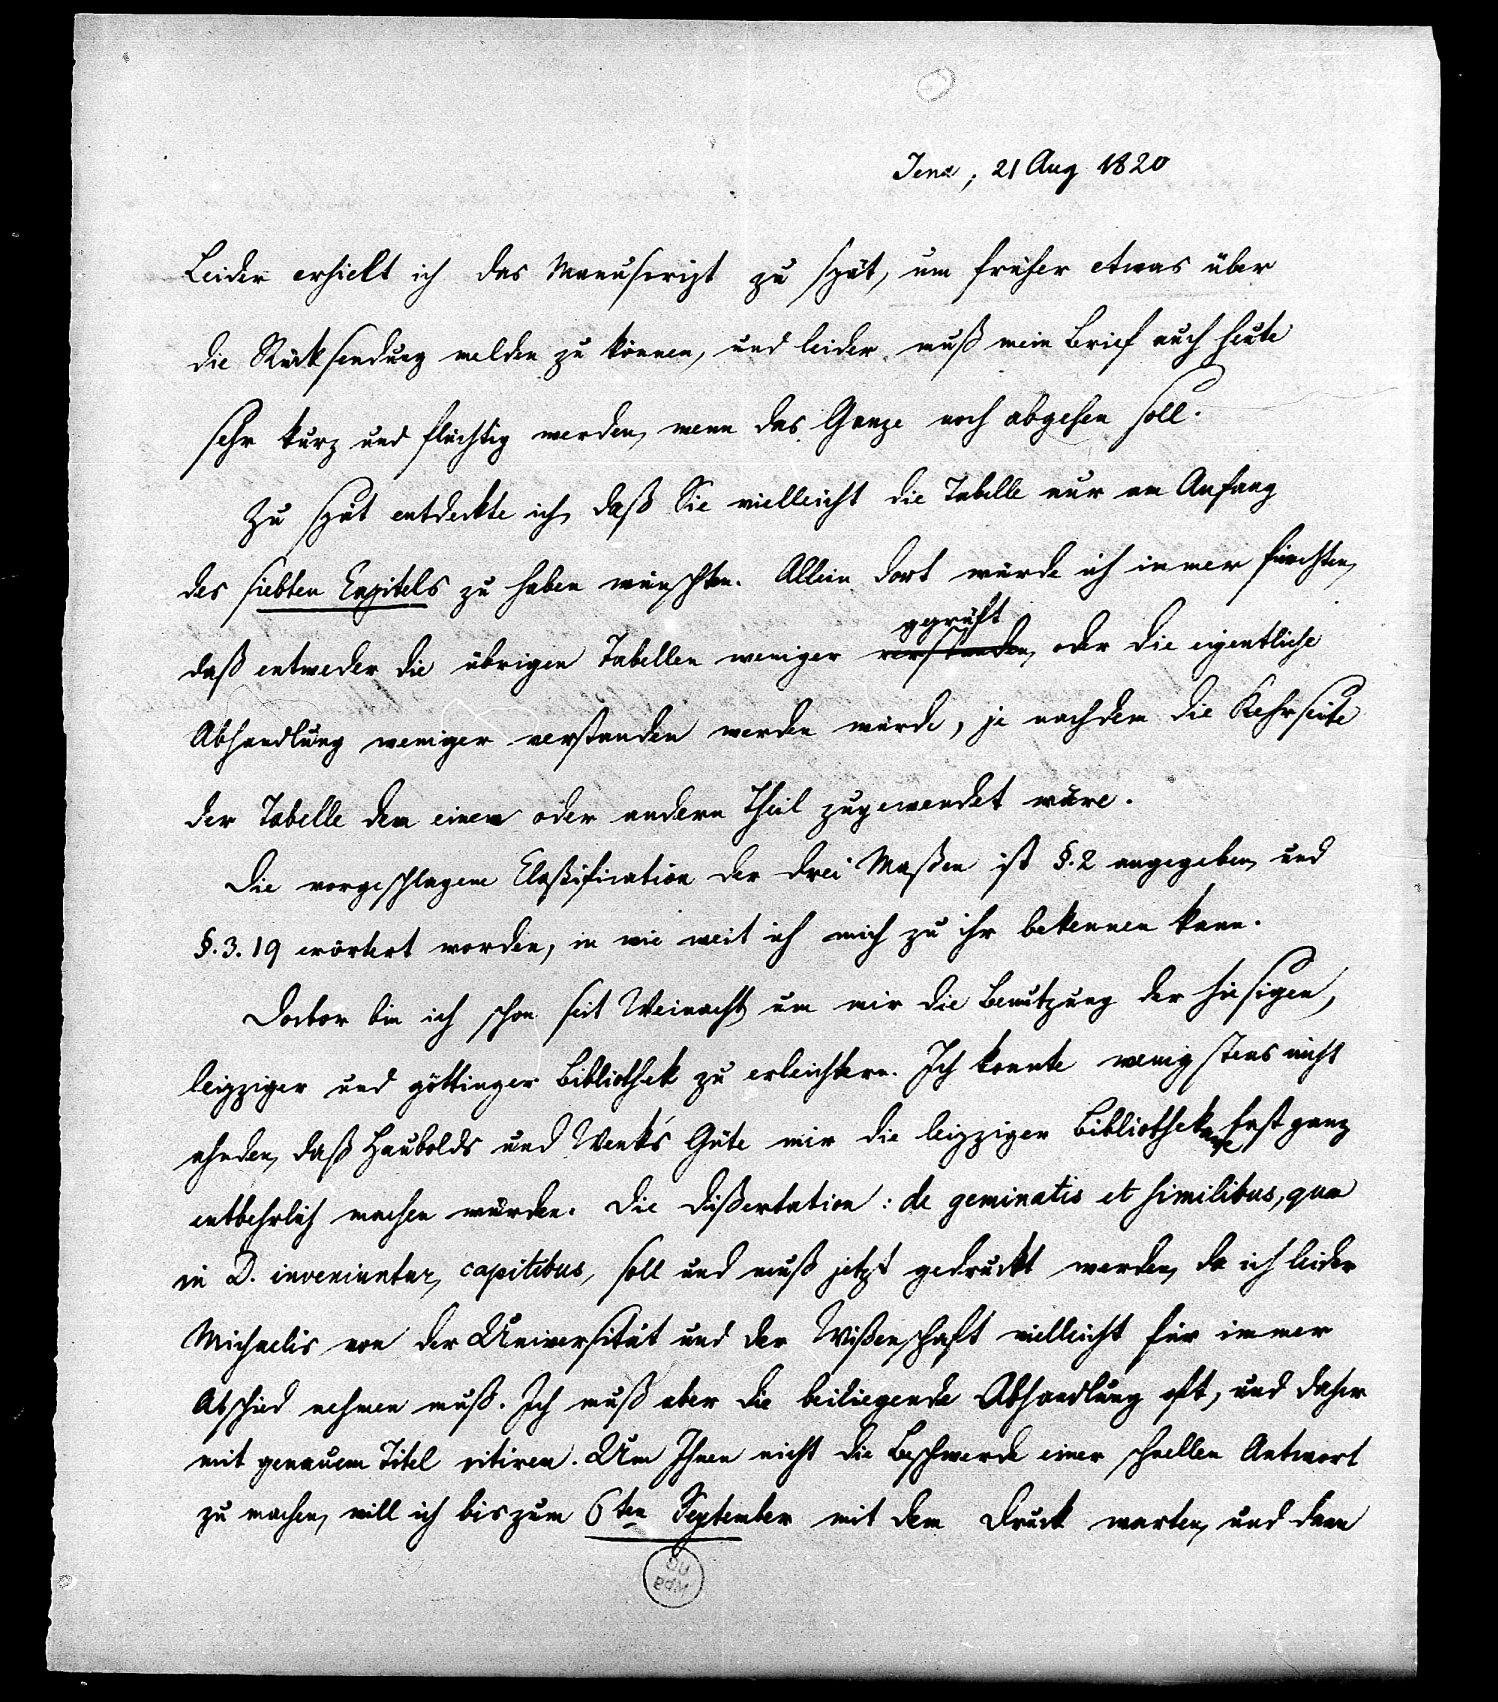 Jena, 21 Aug 1820
Leider erhielt ich das Manuscript zu spät, um früher etwas über
die Rücksendung melden zu können, und leider muß mein Brief auch heute
sehr kurz und flüchtig werden, wenn das Ganze noch abgehen soll.
Zu spät entdeckte ich, daß Sie vielleicht die Tabelle nur am Anfang
des siebten Capitels zu haben wünschten. Allein dort würde ich immer fürchten,
geprüft
daß entweder die übrigen Tabellen weniger verstanden, oder die eigentliche
Abhandlung weniger verstanden werden würde, je nachdem die Kehrseite
der Tabelle dem einen oder andern Theil zugewendet wäre.
Die vorgeschlagene Claßification der drei Maßen ist §. 2 angegeben, und
§. 3. 19 erörtert worden, in wie weit ich mich zu ihr bekennen kann.
Doctor bin ich schon seit Weinacht, um mir die Benutzung der hiesigen,
leipziger und göttinger Bibliothek zu erleichtern. Ich konnte wenigstens nicht
ahnden, daß Haubolds und Wenk's Güte mir die leipziger Bibliotheken fast ganz
entbehrlich machen würden. Die Dißertation: de geminatis et similibus, quae
in D. inveniuntur, capitibus, soll und muß jetzt gedruckt werden, da ich leider
Michaelis von der Universität und der Wißenschaft vielleicht für immer
Abschied nehmen muß. Ich muß aber die beiliegende Abhandlung oft, und daher
mit genauem Titel citiren. Um Ihnen nicht die Beschwerde einer schnellen Antwort
zu machen, will ich bis zum 6ten September mit dem Druck warten, und dann